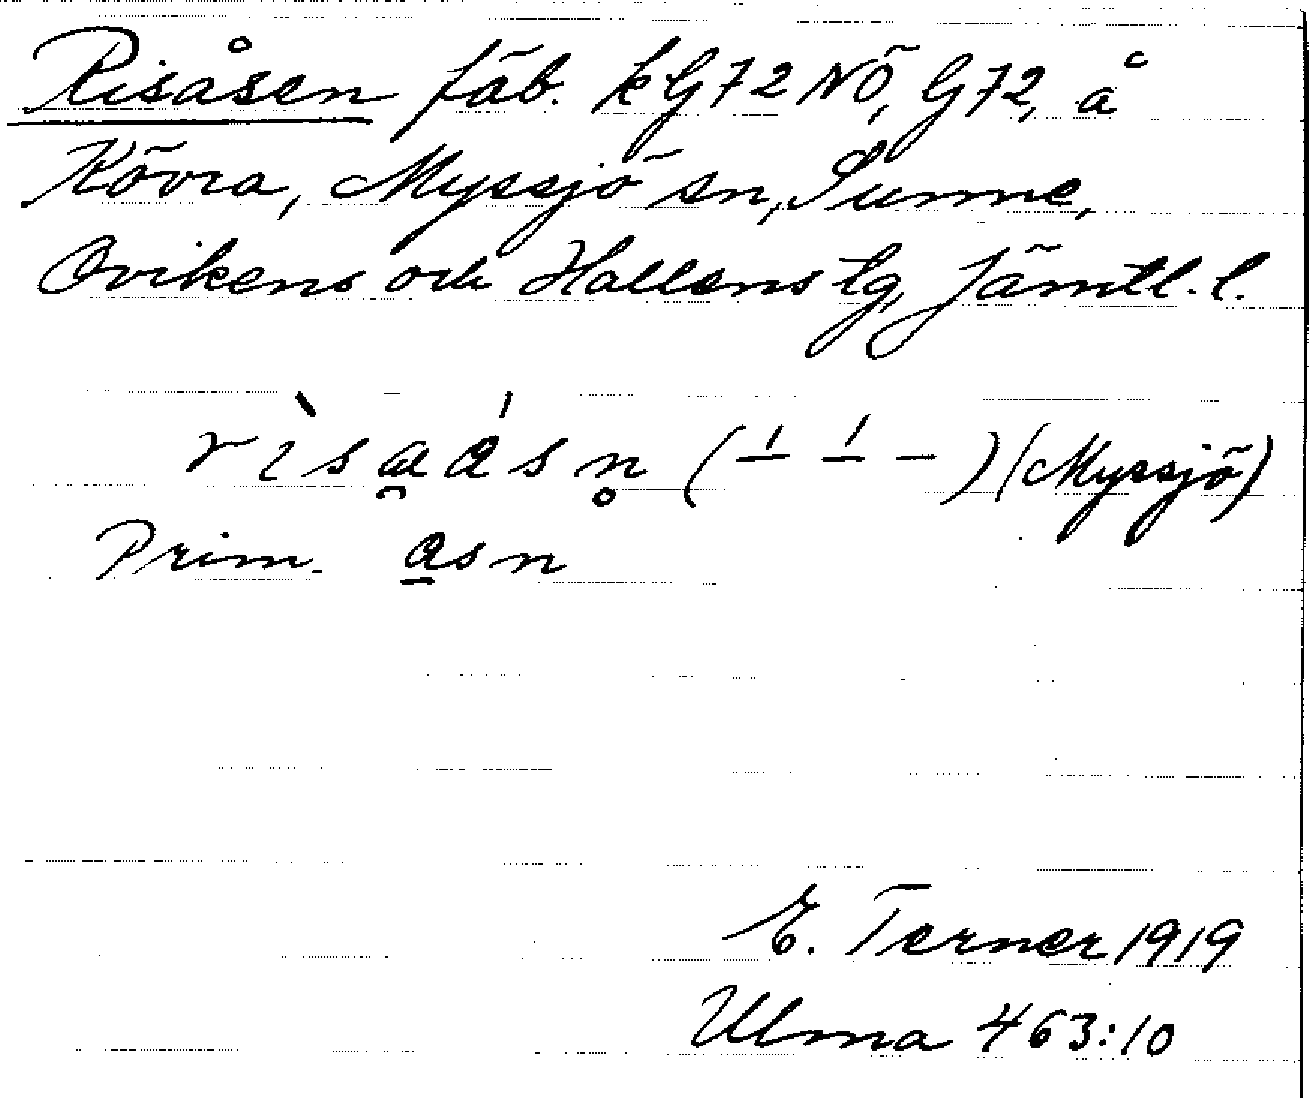 Risåsen fäb. kG72NÖ, G72, å
Kövra, Myssjö sn, Sunne,
Ovikens och Hallens tg, Jämtl. l.
rìsa̯ásn̥ (-́ -́ -) (Myssjö)
Prim. a̲sn
E. Terner 1919
Ulma 463:10